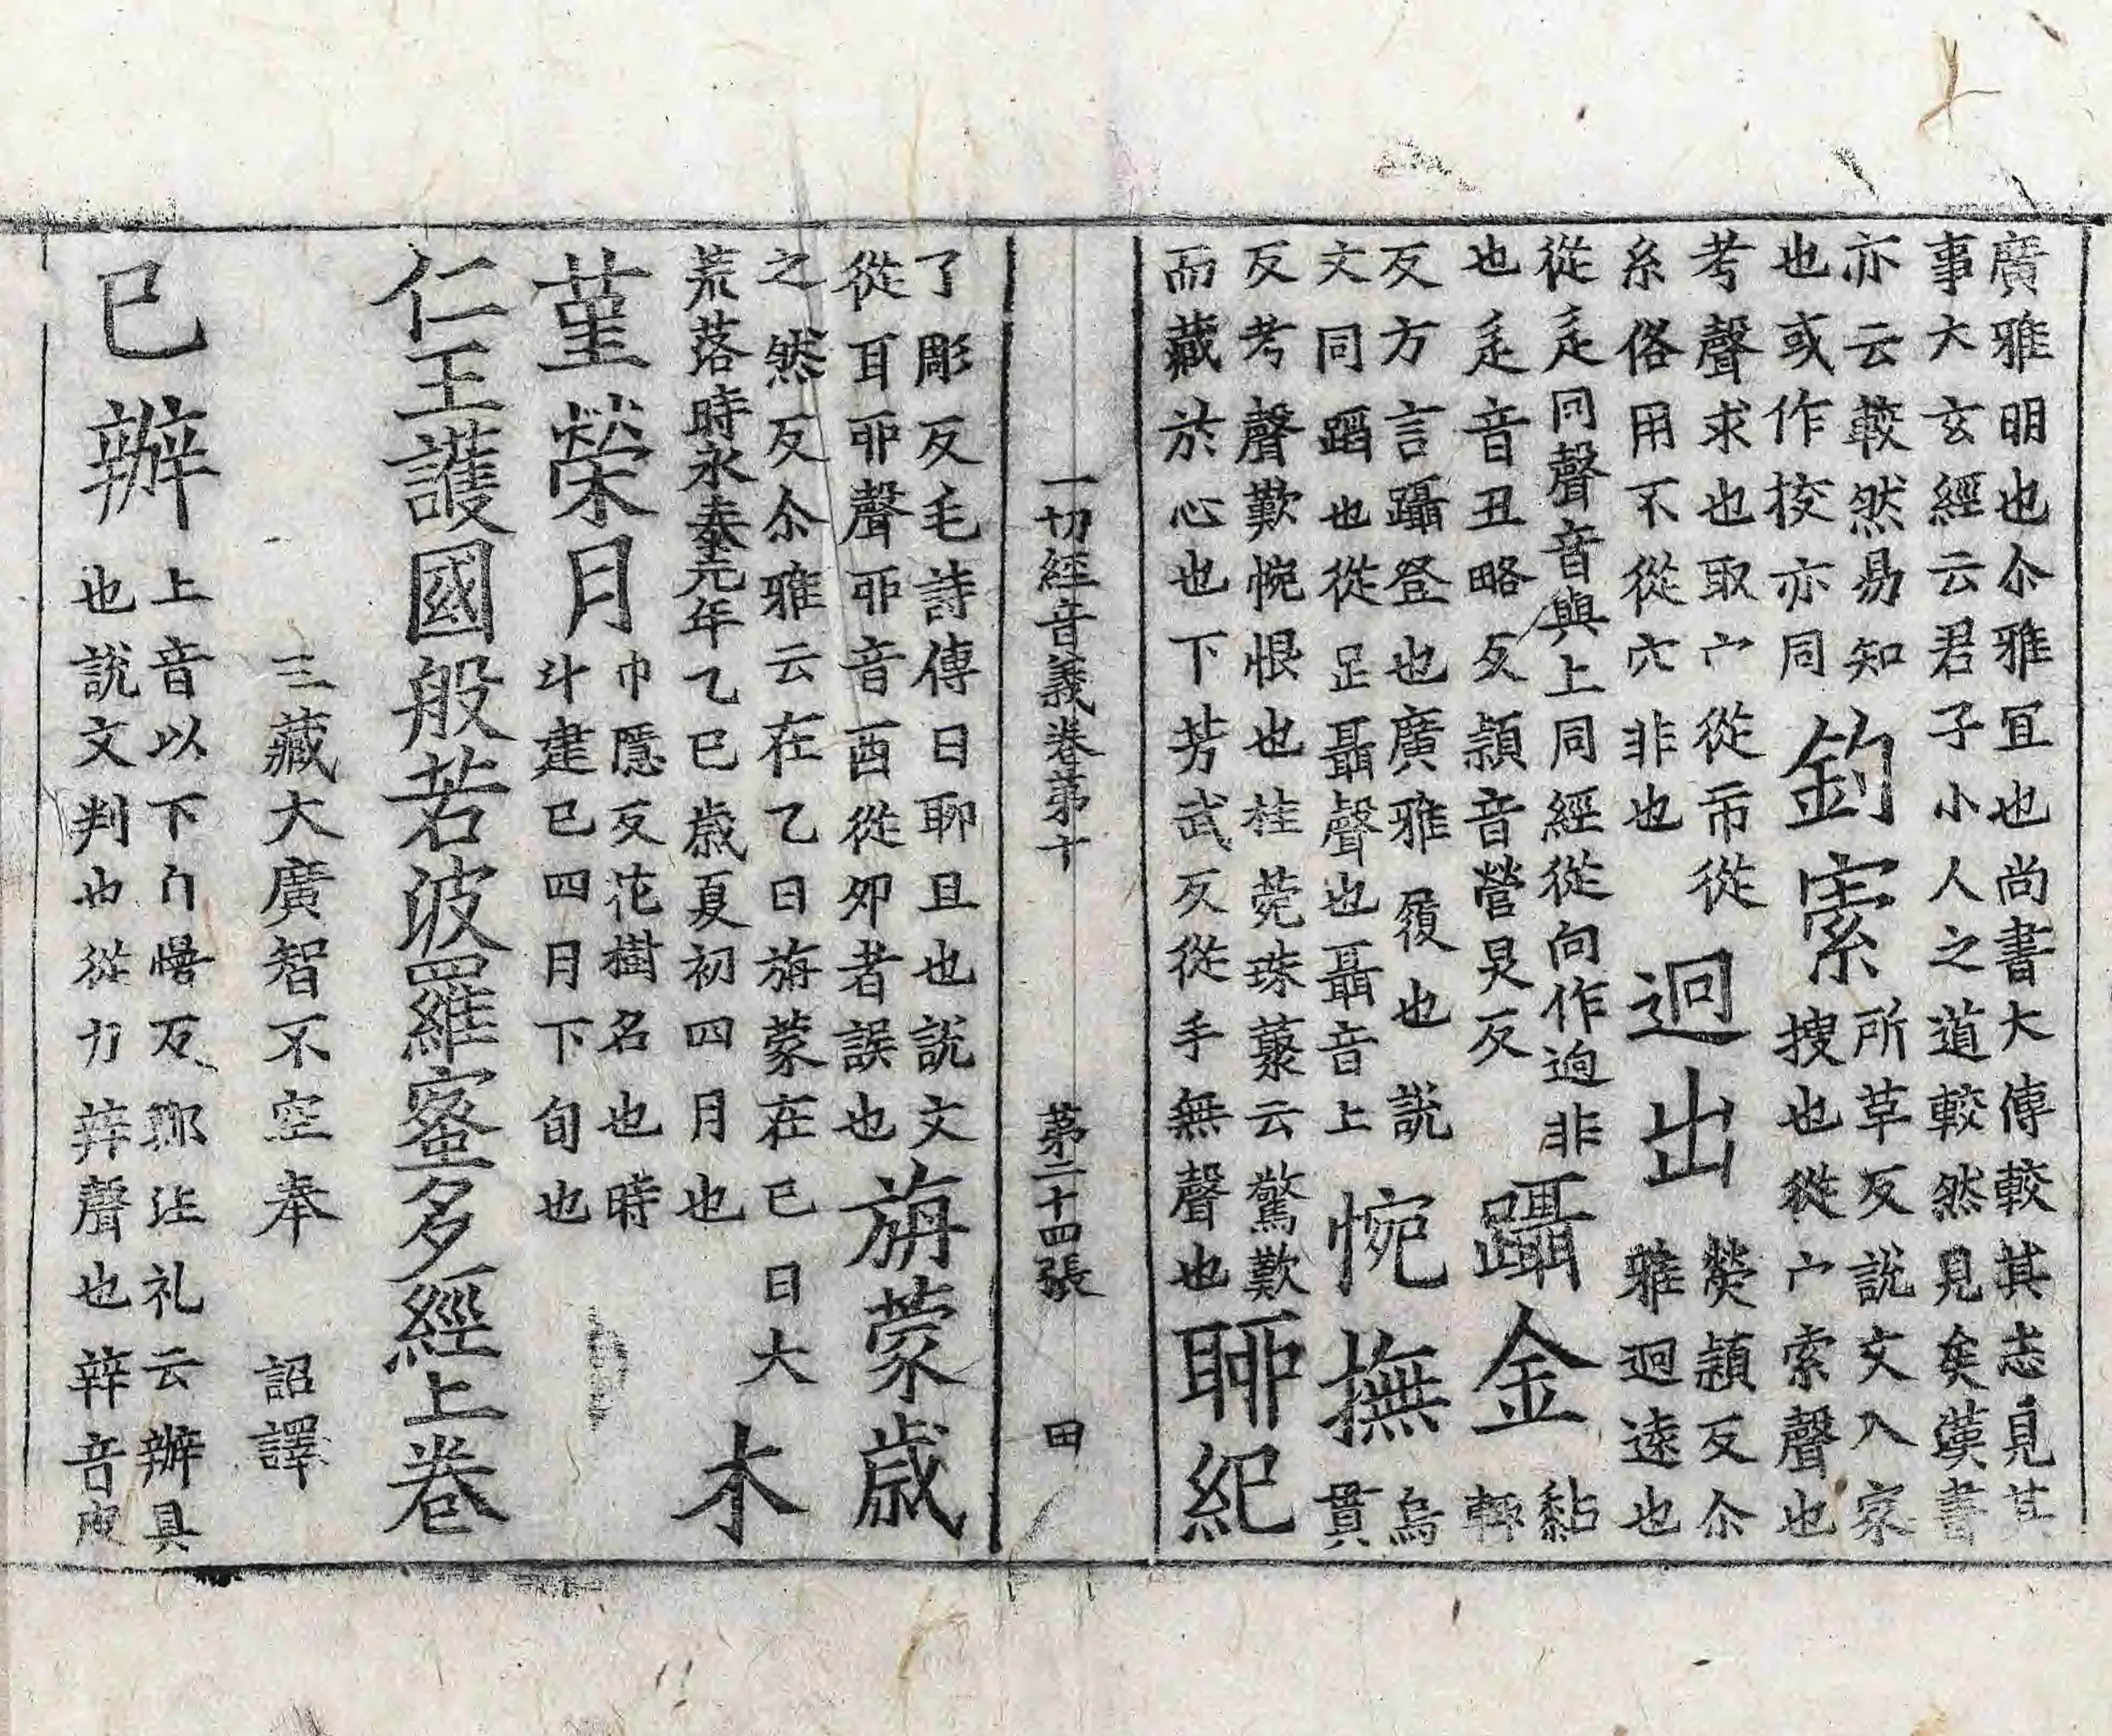 廣雅明也尒雅冝也尚書大傳較其志見其
事大玄經云君子小人之道較然見矣漢書
亦云較然易知
也或作挍亦同
鈎㩠
所革反說文入家
搜也從宀索聲也
考聲求也取宀從𣎵從
糸俗用不從穴非也
迥出
熒穎反尒
雅迥遠也
從辵同聲音與上同經從向作逈非
也辵音丑略反潁音營炅反
躡金
黏
輒
反方言躡登也廣雅履也說
文同蹈也從足聶聲也聶音上
惋撫
烏
貫
反考聲歎惋恨也桂菀珠藂云驚歎
而藏於心也下芳武反從手無聲也
聊紀
一切經音義卷第十 第二十四張 田
了彫反毛詩傳曰聊且也說文
從耳丣聲丣音酉從夘者誤也
旃蒙歲
之然反尒雅云在乙曰旃蒙在巳曰大
荒落時永泰元年乙巳歲夏初四月也
木
菫榮月
巾隱反花樹名也時
斗建巳四月下旬也
仁王護國般若波羅蜜多經上卷
三藏大廣智不空奉 詔譯
已辦
上音以下⺊慢反鄭注礼云辦具
也說文判也從力辡聲也辡音